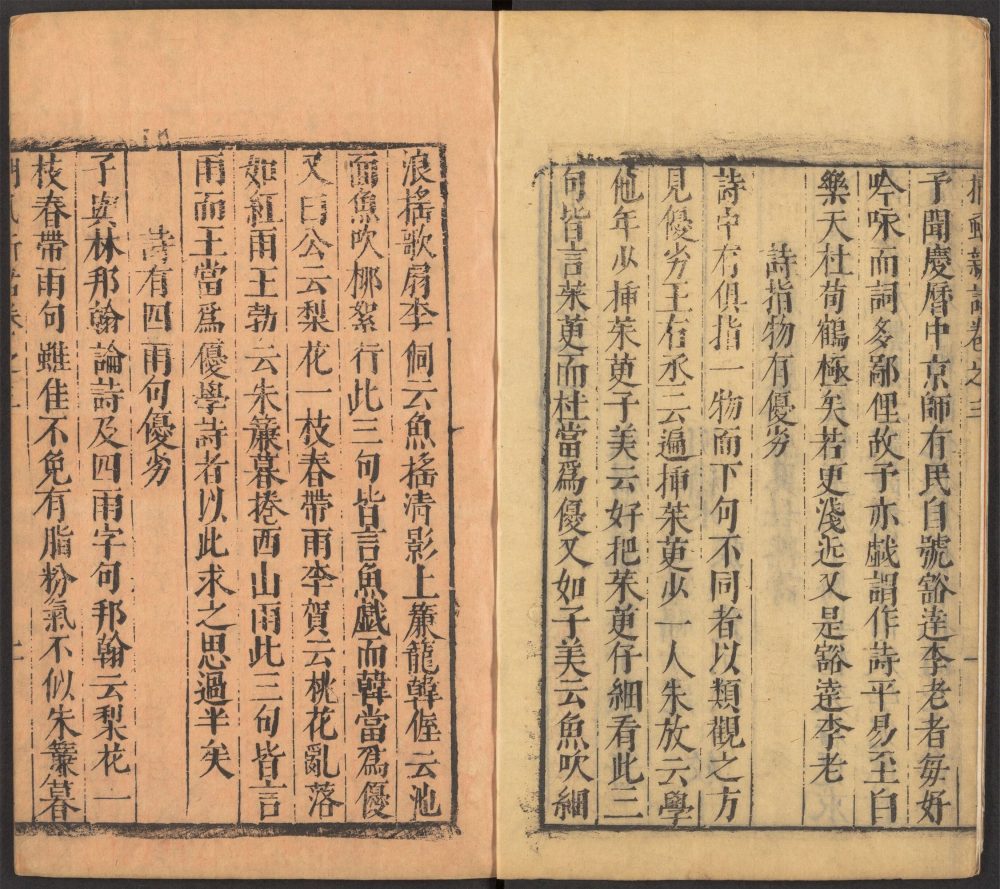 捫蝨新話卷之三
予聞慶曆中京師有民自號豁達李老者每好
吟咏而詞多鄙俚故予亦戯謂作詩平易至白
樂天杜荀鶴極矣若更淺近又是豁達李老
詩指物有優劣
詩中有俱指一物而下句不同者以類觀之方
見優劣王右丞云遍揷茱萸少一人朱放云學
他年少揷茱萸子美云好把茱萸仔細看此三
句皆言茱萸而杜當爲優又如子美云魚吹細
浪搖歌扇李洞云魚搖清影上簾籠韓偓云池
面魚吹栁絮行此三句皆言魚戯而韓當爲優
又白公云梨花一枝春帶雨李賀云桃花亂落
如紅雨王勃云朱簾暮捲西山雨此三句皆言
雨而王當爲優學詩者以此求之思過半矣
詩有四雨句優劣
予與林邦翰論詩及四雨字句邦翰云梨花一
枝春帶雨句雖佳不免有脂粉氣不似朱簾暮